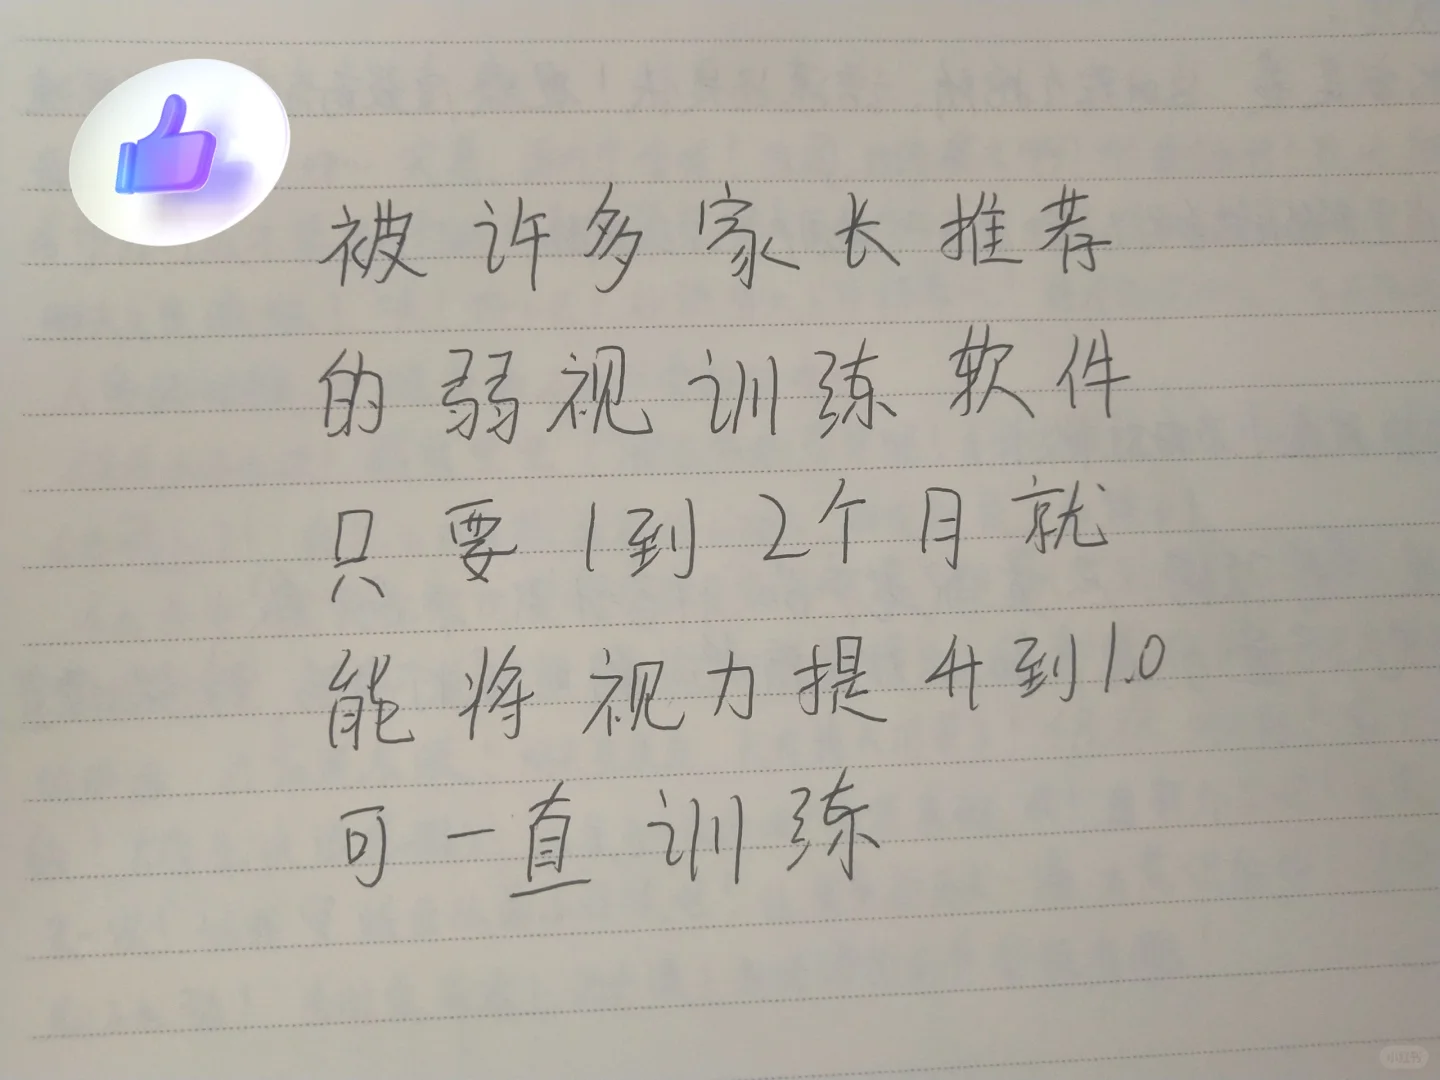 被许多家长推荐
的弱视训练软件
只要1到2个月就
能将视力提升到1.0
可一直训练
小红书